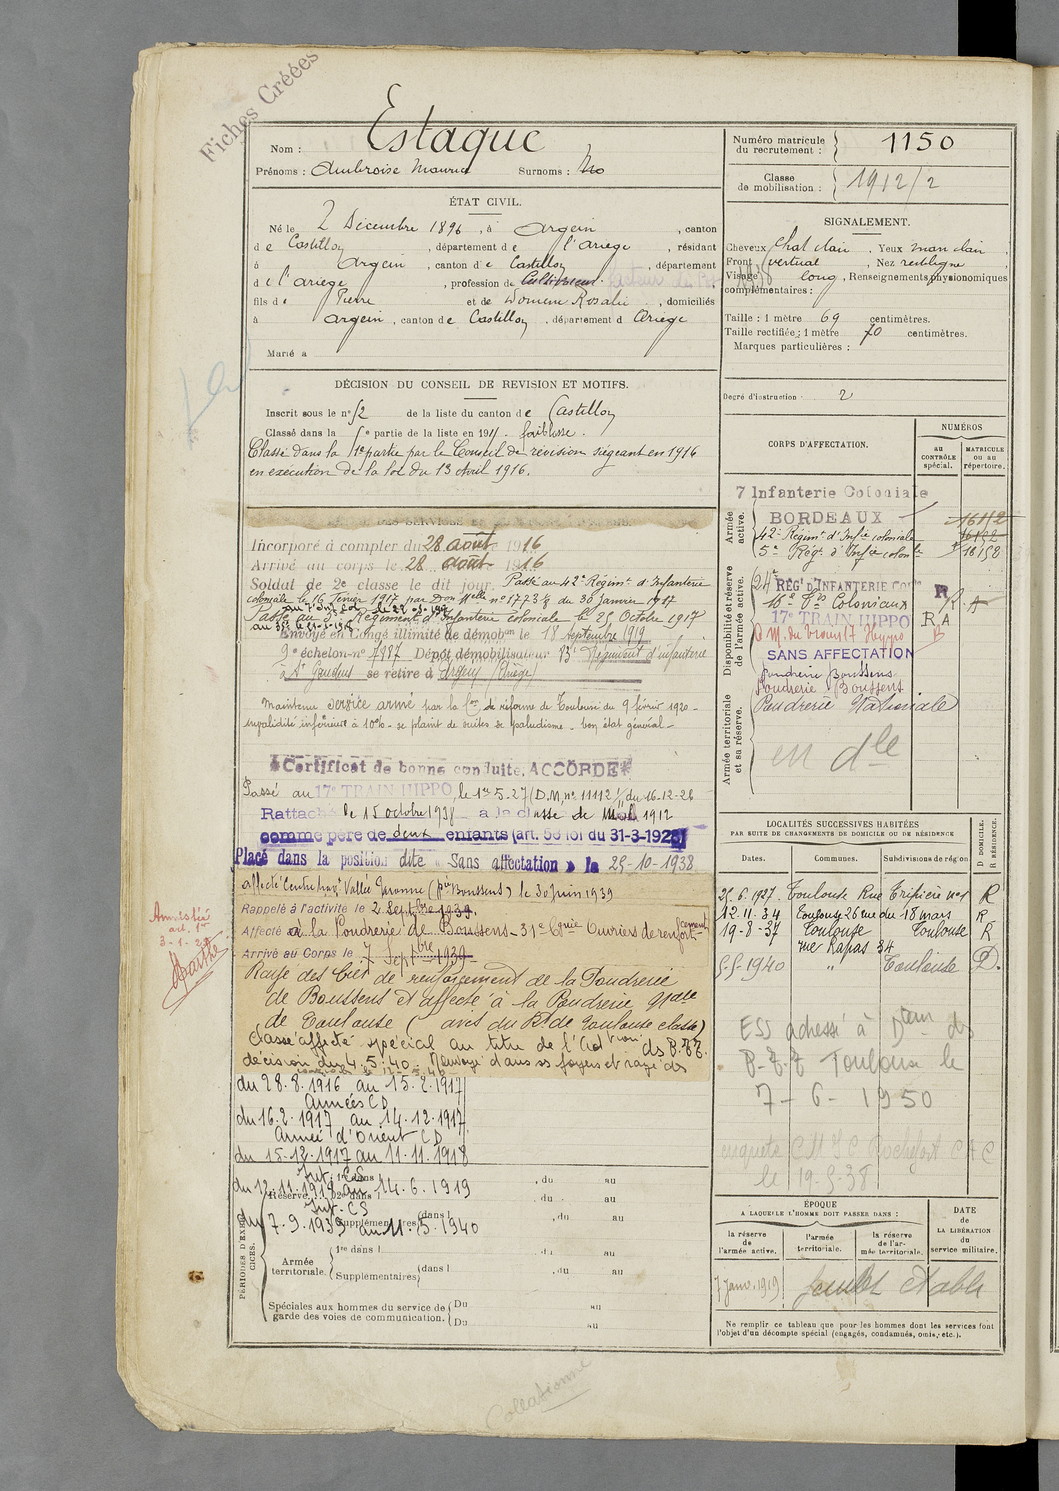 Fiches Créées
Nom : Estaque
Prénoms : Ambroise Maurice Surnoms : No
Numéro matricule du recrutement : 1150
Classe de mobilisation : 1912/2
ÉTAT CIVIL.
Né le 2 Décembre 1896, à Argein, canton
de Castillon, département de l'Ariège, résidant
à Argein, canton de Castillon, département
de l'Ariège, profession de Cultivateur.
fils de Pierre et de Domenc Rosalie, domiciliés
à Argein, canton de Castillon, département d Ariège
Marié à
SIGNALEMENT.
Cheveux chat clair, Yeux marr clair,
Front vertical, Nez rectiligne,
Visage long, Renseignements physionomiques
complémentaires :
Taille : 1 mètre 69 centimètres.
Taille rectifiée : 1 mètre 70 centimètres.
Marques particulières :
Degré d'instruction 2
DÉCISION DU CONSEIL DE REVISION ET MOTIFS.
Inscrit sous le n° 52 de la liste du canton de Castillon
Classé dans la 5e partie de la liste en 191 . faiblesse.
Classé dans la 1re partie par le Conseil de révision siégeant en 1916
en exécution de la loi du 13 avril 1916.
Incorporé à compter du 28 août 1916
Arrivé au corps le 28 août 1916
Soldat de 2e classe le dit jour Passé au 42e Régiment d'Infanterie
coloniale le 16 février 1917 par Don Melle n° 1773 du 30 janvier 1917
Passé au 5e Régiment d'Infanterie coloniale le 25 Octobre 1917
Envoyé en Congé illimité de démobon le 18 septembre 1919
9e échelon n° 7987 Dépôt démobilisateur 83e Régiment d'infanterie
à St Gaudens se retire à Argein (Ariège)
Maintenu service armé par la Con de réforme de Toulouse du 9 février 1920 -
invalidité inférieure à 10% - se plaint de suites de paludisme - bon état général -
Certificat de bonne conduite. ACCORDÉ
Passé au 17e TRAIN HIPPO, le 1er-5-27 (D.M, n° 11112 du 16-12-26
Rattaché le 15 octobre 1938 à la classe de Mob 1912
comme père de deux enfants (art. 58 loi du 31-3-1928)
Placé dans la position dite « Sans affectation » le 25-10-1938
affecté Centre Vallée Garonne (Boussens) le 30 juin 1939
Rappelé à l'activité le 2 Septbre 1939.
Affecté à la Poudrerie de Boussens - 31e Cgnie Ouvriers de renforcement
Arrivé au Corps le 7 Septbre 1939
Rayé des Cies de renforcement de la Poudrerie
de Boussens et affecté à la Poudrerie Nale
de Toulouse ( avis du Rt de Toulouse classe)
Classé affecté spécial au titre de l'
décision du 4.5.40 - Renvoyé dans ses foyers et rayé des
du 28.8.1916 au 15.2.1917
Armées CD
du 16.2.1917 au 14.12.1917
Armée d'Orient CD
du 15.12.1917 au 11.11.1918
Int. CS
du 12.11.1918 au 14.6.1919
Int. CS
du 7.9.1939 au 11.5.1940
PÉRIODES D'EXERCICES.
Réserve. 1re dans l , du au
2e dans l , du au
Supplémentaires (dans l , du au
Armée territoriale. 1re dans l , du au
Supplémentaires (dans l , du au
Spéciales aux hommes du service de garde des voies de communication. Du au
Du au
Amnistié
art. 1er
CORPS D'AFFECTATION.
NUMÉROS
au CONTRÔLE spécial.
MATRICULE ou au répertoire.
Armée active.
7 Infanterie Coloniale
BORDEAUX 16112
42e Régiment d'Infie coloniale
5e Régt d'Infie coloniale 18158
Disponibilité et réserve de l'armée active.
24e RÉG' D'INFANTERIE Colle R
Coloniaux
17e TRAIN HIPPO R.A
SANS AFFECTATION
Poudrerie Boussens
Poudrerie Boussens
Poudrerie Nationale
Armée territoriale et sa réserve.
en dle
LOCALITÉS SUCCESSIVES HABITÉES
PAR SUITE DE CHANGEMENTS DE DOMICILE OU DE RÉSIDENCE
D DOMICILE. R RÉSIDENCE.
Dates. Communes. Subdivisions de région
25.6.1927 Toulouse Rue Tripière n° 1 R
12.11.34 Toulouse 26 rue du 18 mars R
19-8-37 Toulouse Toulouse R
rue Rapas 34
5-5-1940 " Toulouse D.
ESS adressé à Dteur des
P.T.T Toulouse le
7 - 6 - 1950
enquête Rochefort
le 19-5-38
ÉPOQUE
A LAQUELLE L'HOMME DOIT PASSER DANS :
la réserve de l'armée active.
l'armée territoriale.
la réserve de l'armée territoriale.
DATE de LA LIBÉRATION du service militaire.
7 janv. 1919
Ne remplir ce tableau que pour les hommes dont les services font
l'objet d'un décompte spécial (engagés, condamnés, omis, etc.).
Collationné